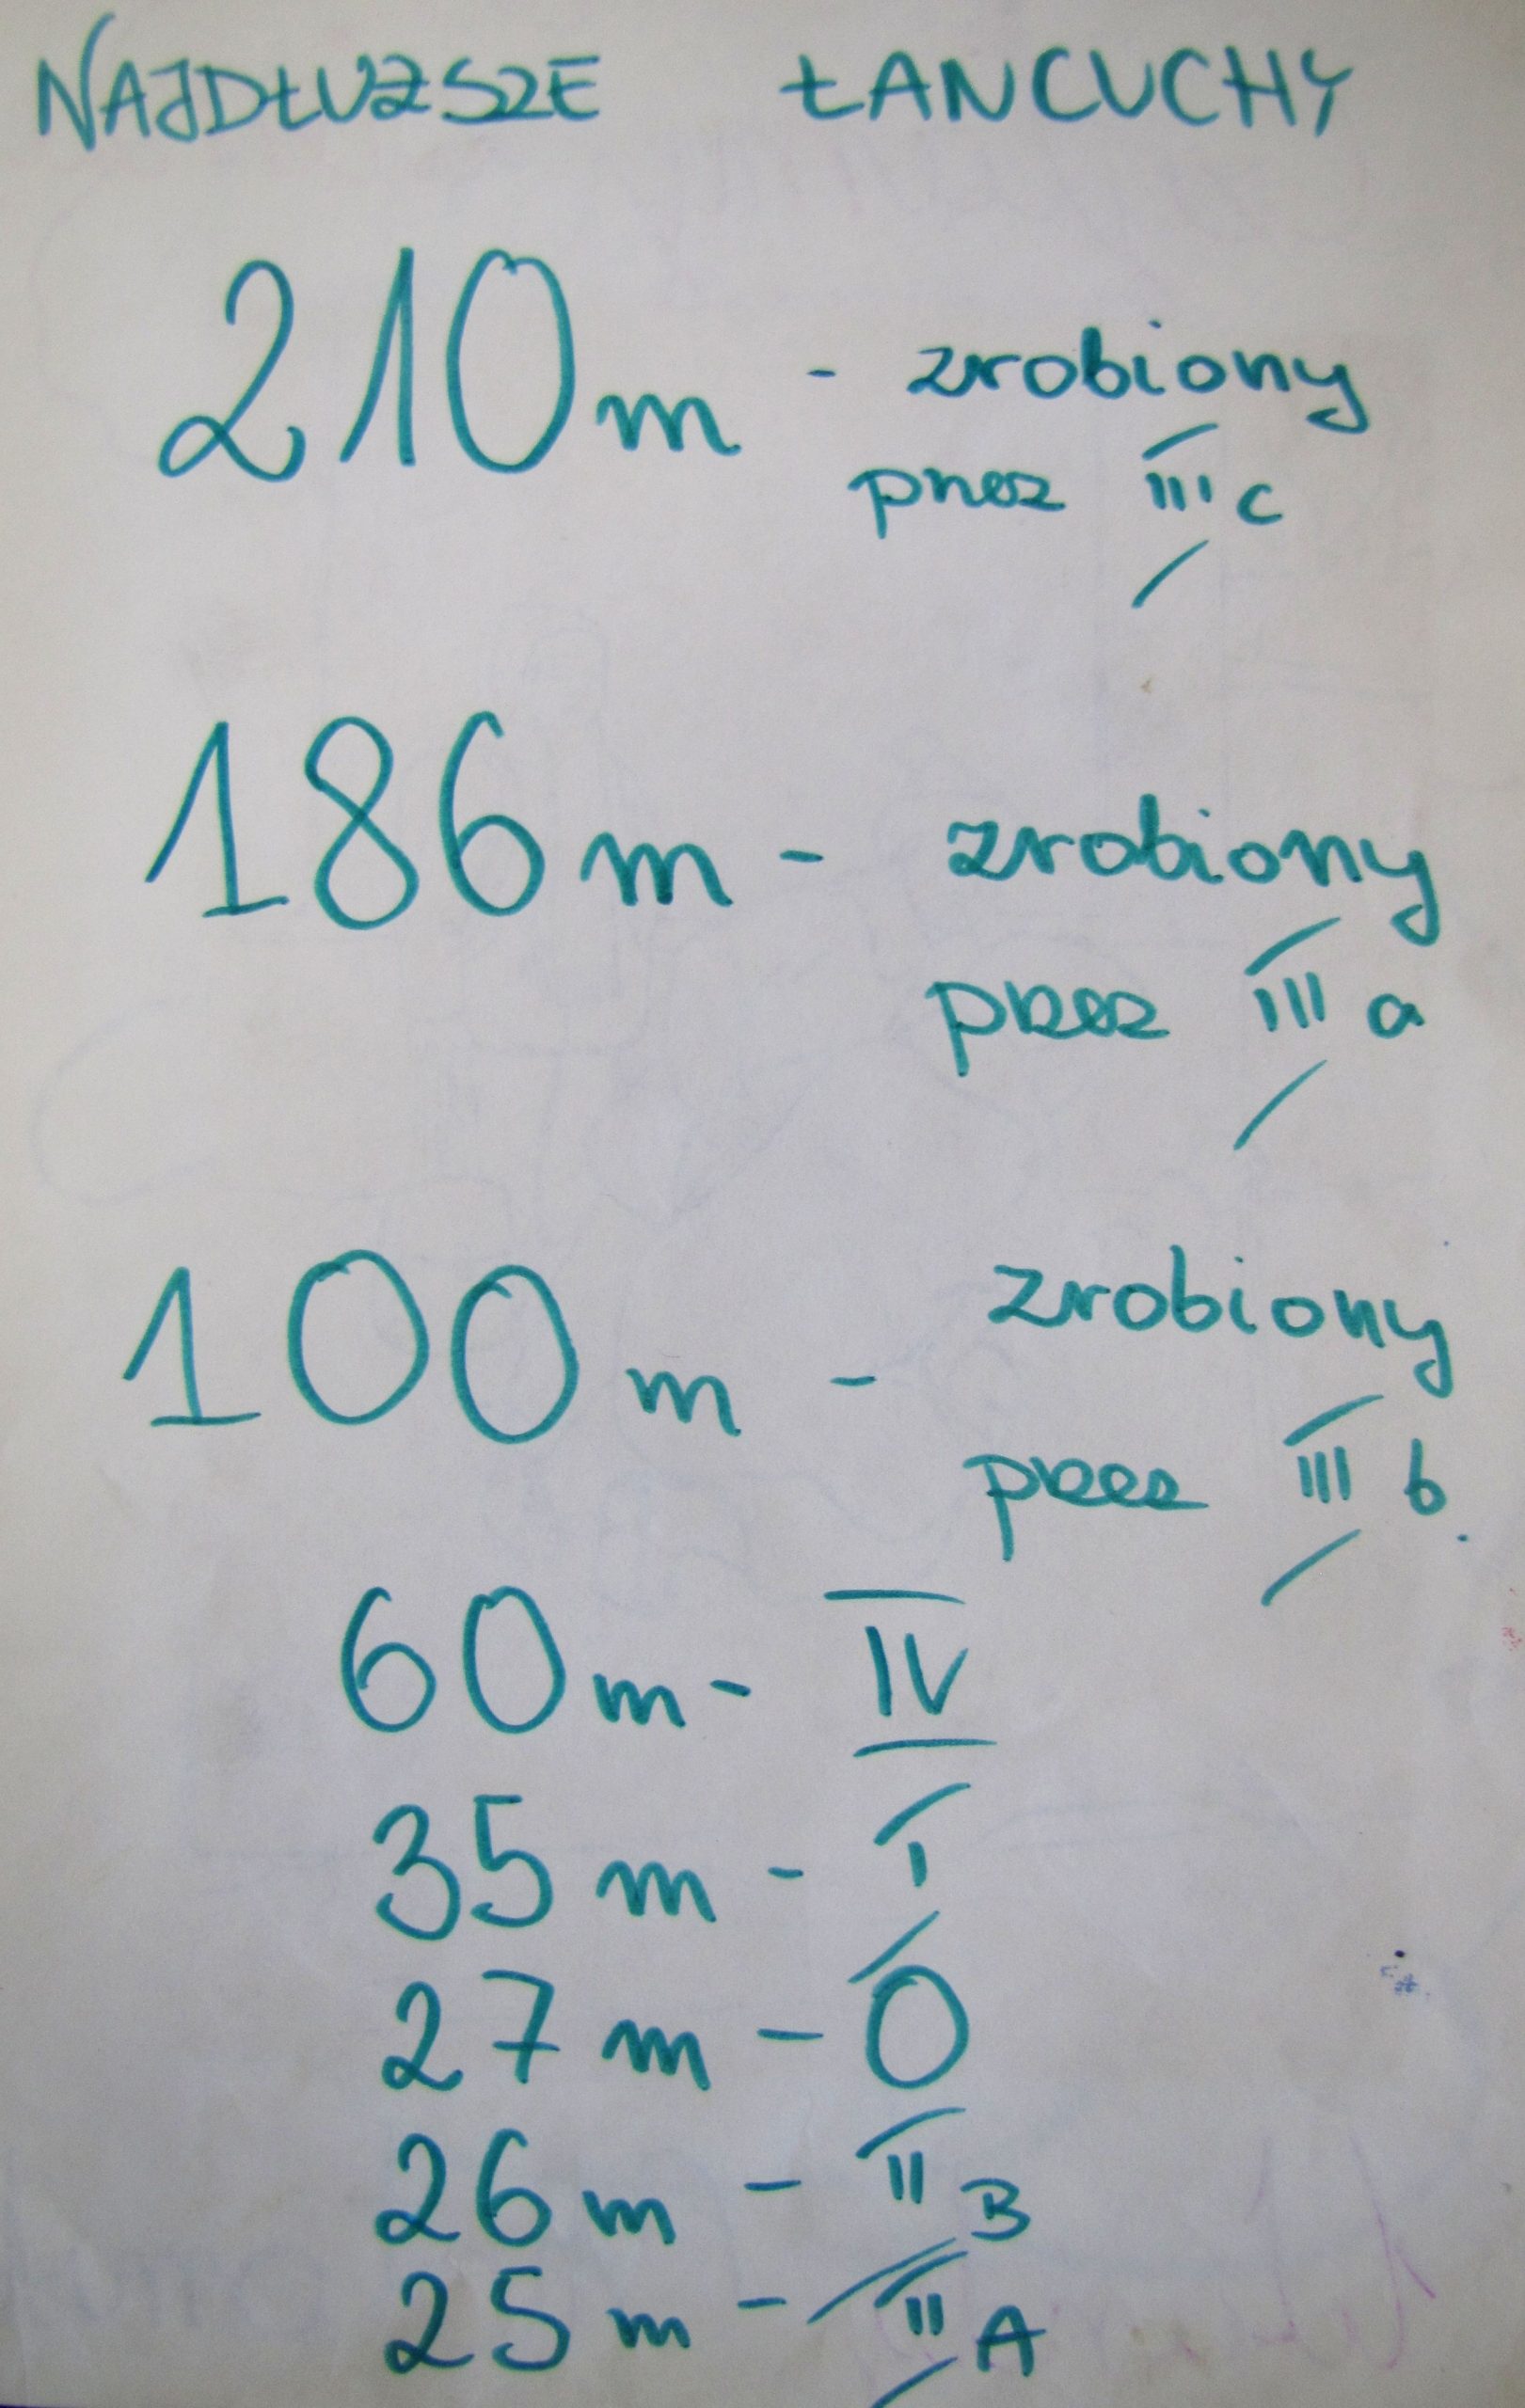 NAJDŁUŻSZE ŁANCUCHY
210 m - zrobiony
przez III c
186 m - zrobiony
przez III a
100 m - zrobiony
przez III b.
60 m - IV
35 m - I
27 m - O
26 m - II B
25 m - II A